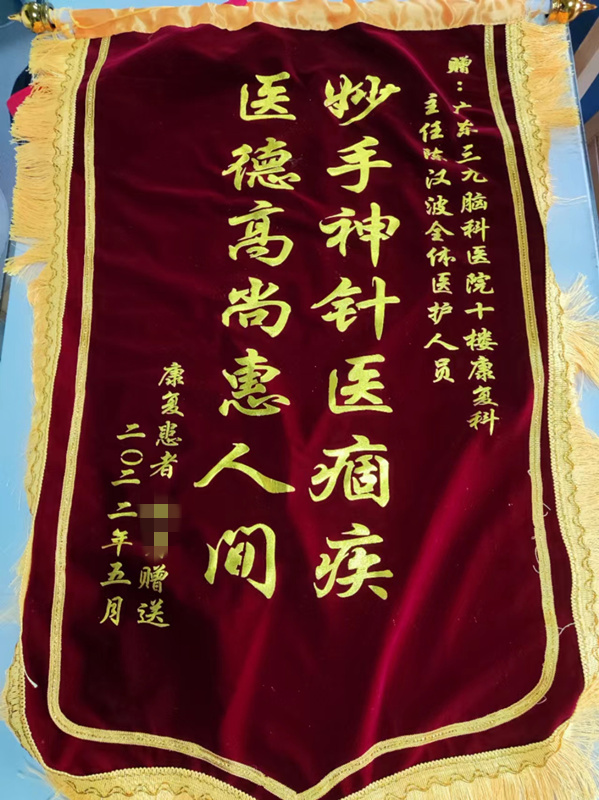 赠：广东三九脑科医院十楼康复科
主任陈汉波全体医护人员
妙手神针医痼疾
医德高尚惠人间
康复患者 赠送
二〇二二年五月